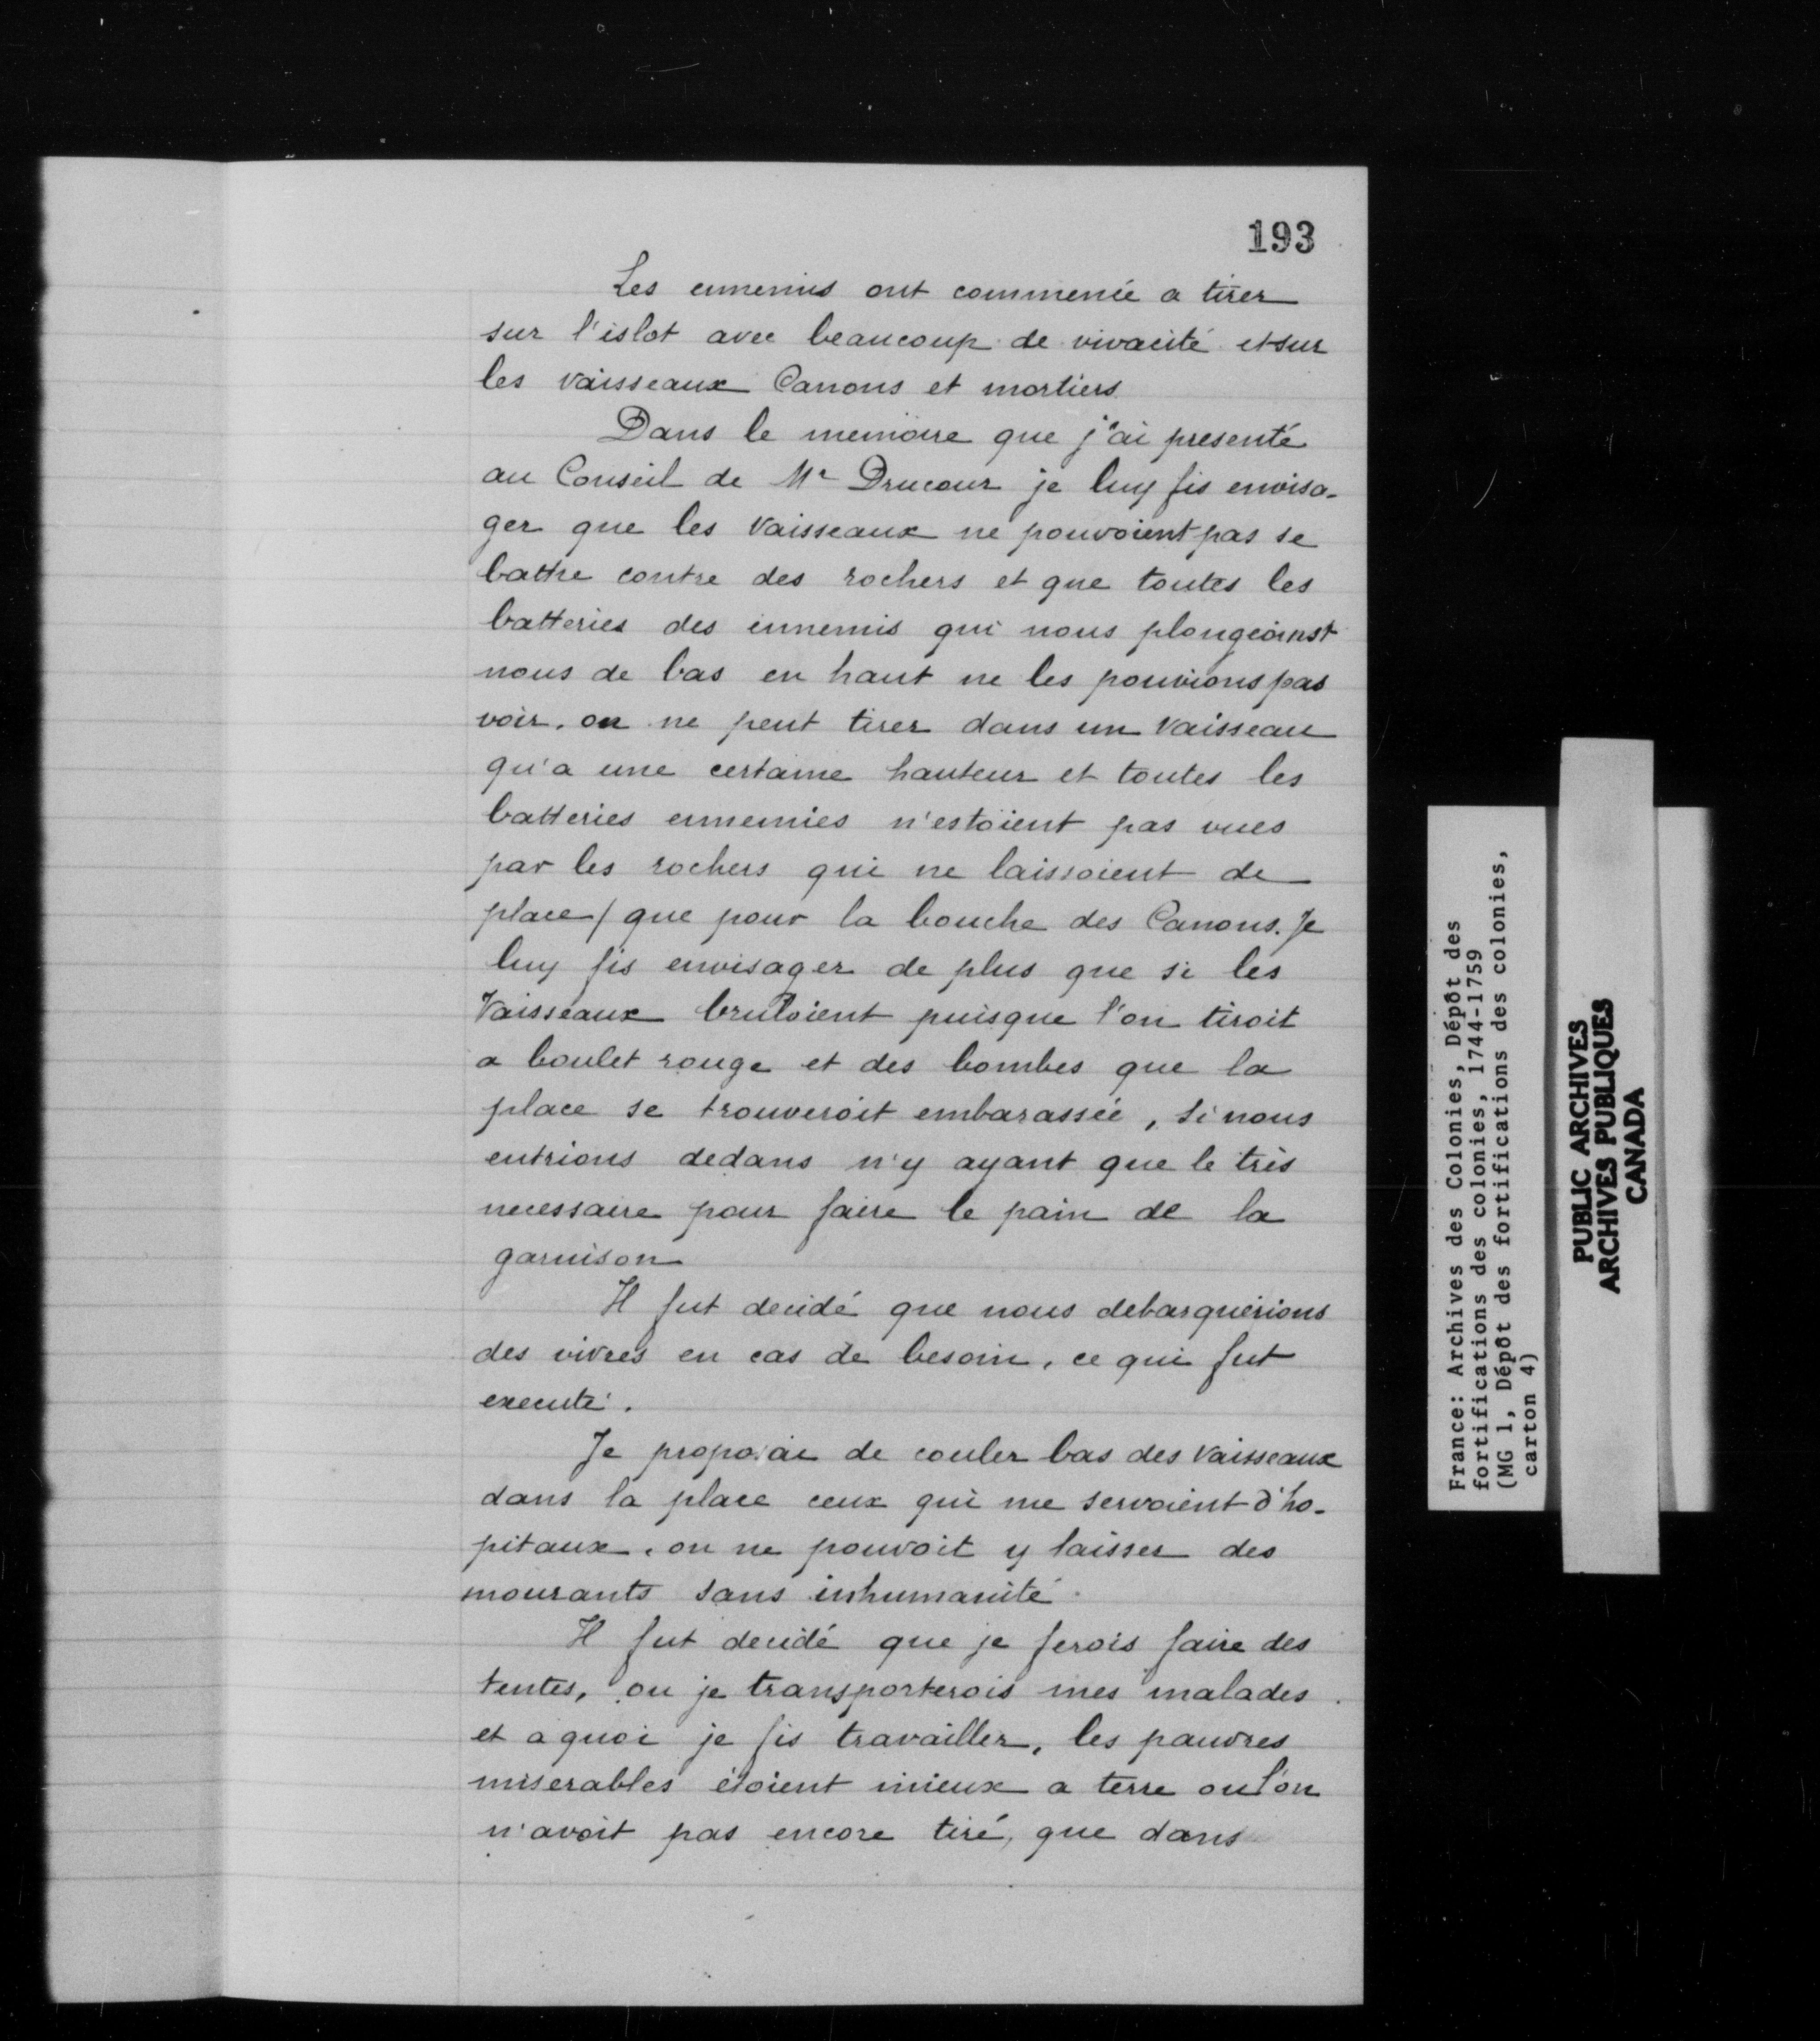 193
Les ennemis ont commencé a tirer
sur l'islot avec beaucoup de vivacité et sur
les vaisseaux Canons et mortiers
Dans le memoire que j'ai presenté
au Conseil de Mr Drucour je luy fis envisa-
ger que les Vaisseaux ne pouvoient pas se
battre contre des rochers et que toutes les
batteries des ennemis qui nous plongeoinst
nous de bas en haut ne les pouvions pas
voir. on ne peut tirer dans un Vaisseau
qu'a une certaine hauteur et toutes les
batteries ennemies n'estoient pas vues
par les rochers qui ne laissoient de
place / que pour la bouche des Canons. Je
luy fis envisager de plus que si les
Vaisseaux bruloient puisque l'on tiroit
a boulet rouge et des bombes que la
place se trouveroit embarassée, si nous
entrions dedans n'y ayant que le très
necessaire pour faire le pain de la
garnison
Il fut decidé que nous debarquerions
des vivres en cas de besoin, ce qui fut
executé.
Je proposai de couler bas des Vaisseaux
dans la place ceux qui me servoient d'ho-
pitaux, on ne pouvoit y laisser des
mourants sans inhumanité.
Il fut decidé que je ferois faire des
tentes, ou je transporterois mes malades.
et a quoi je fis travailler, les pauvres
miserables étoient mieux a terre ou l'on
n'avoit pas encore tiré, que dans
France: Archives des Colonies, Dépôt des
fortifications des colonies, 1744-1759
(MG 1, Dépôt des fortifications des colonies,
carton 4)
PUBLIC ARCHIVES
ARCHIVES PUBLIQUES
CANADA